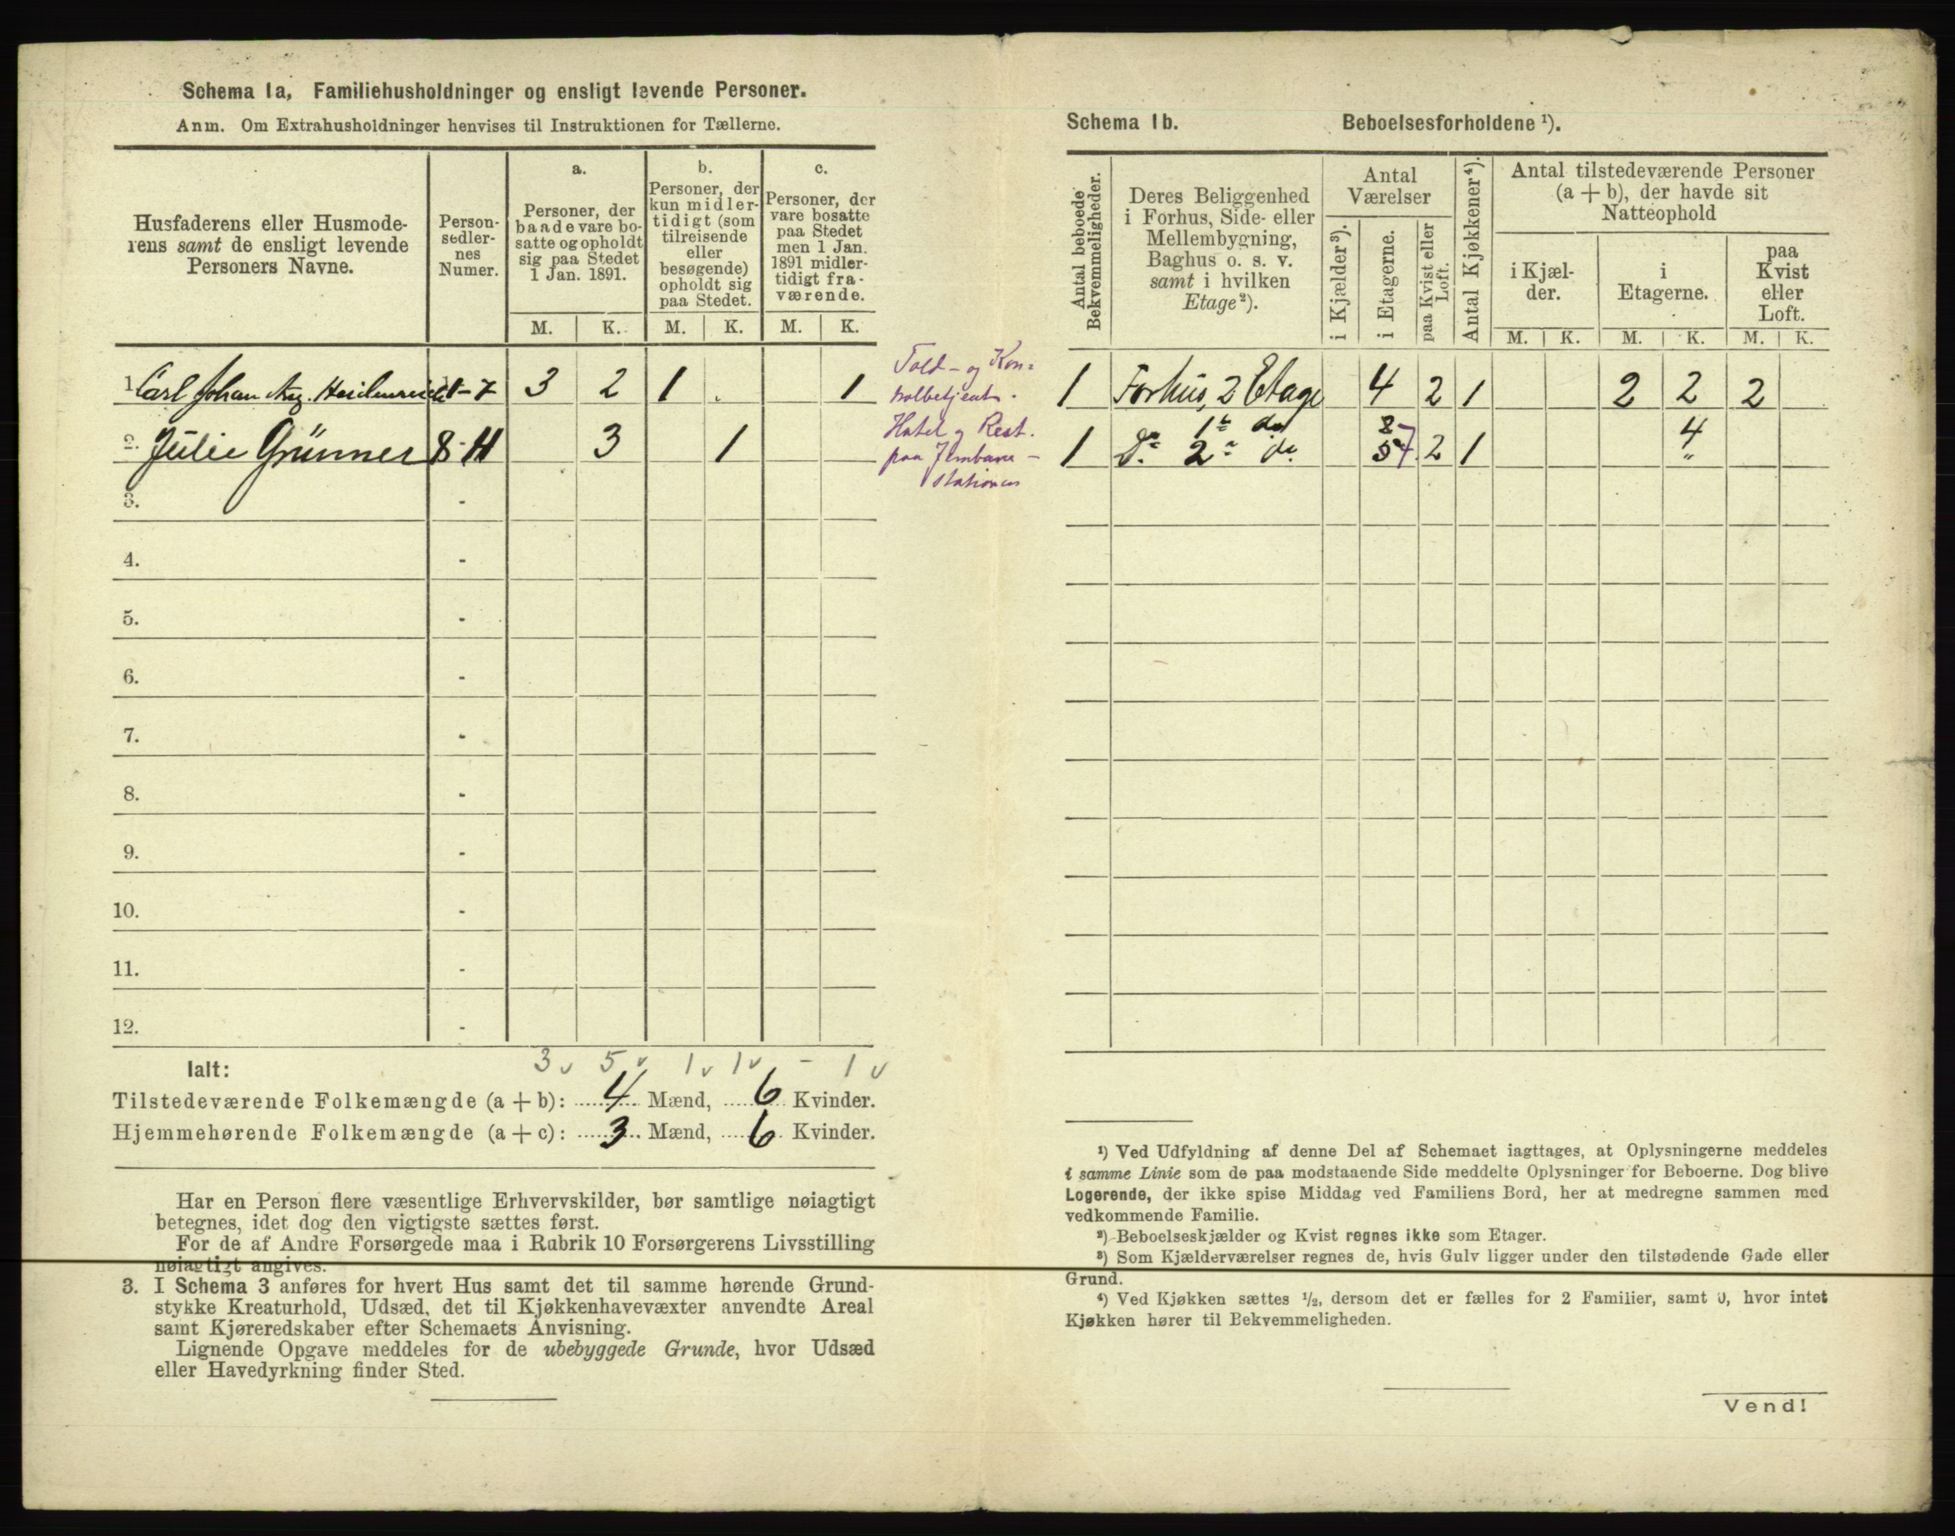 Schema 1a, Familiehusholdninger og ensligt levende Personer.
Anm. Om Extrahusholdninger henvises til Instruktionen for Tællerne.
Husfaderens eller Husmode-
rens samt de ensligt levende
Personers Navne.
Person-
sedler-
nes
Numer.
a.
Personer, der
baade vare bo-
satte og opholdt
sig paa Stedet
1 Jan. 1891.
b.
Personer, der
kun midler-
tidigt (som
tilreisende
eller
besøgende)
opholdt sig
paa Stedet.
c.
Personer, der
vare bosatte
paa Stedet
men 1 Jan.
1891 midler-
tidigt fra-
værende.
M. K. M. K. M. K.
1. Carl Johan Aug. Heidenreich 1-7 3 2 1 . 1
2. Julie Grünner 8-11 3 1
3. -
4. -
5. -
6. -
7. -
8. -
9. -
10. -
11. -
12. -
Ialt: 3 5 1 1 - 1
Tilstedeværende Folkemængde (a + b): 4 Mænd, 6 Kvinder.
Hjemmehørende Folkemængde (a + c): 3 Mænd, 6 Kvinder.
Har en Person flere væsentlige Erhvervskilder, bør samtlige nøiagtigt
betegnes, idet dog den vigtigste sættes først.
For de af Andre Forsørgede maa i Rubrik 10 Forsørgerens Livsstilling
nøiagtigt angives.
3. I Schema 3 anføres for hvert Hus samt det til samme hørende Grund-
stykke Kreaturhold, Udsæd, det til Kjøkkenhavevæxter anvendte Areal
samt Kjøreredskaber efter Schemaets Anvisning.
Lignende Opgave meddeles for de ubebyggede Grunde, hvor Udsæd
eller Havedyrkning finder Sted.
Told- og Kon-
trolbetjent.
Hotel og Rest.
paa Jernbane-
stationen
Schema 1b. Beboelsesforholdene ¹).
Antal beboede
Bekvemmeligheder.
Deres Beliggenhed
i Forhus, Side- eller
Mellembygning,
Baghus o. s. v.
samt i hvilken
Etage ²).
Antal
Værelser
i Kjælder ³).
i Etagerne.
paa Kvist eller
Loft.
Antal Kjøkkener ⁴).
Antal tilstedeværende Personer
(a + b), der havde sit
Natteophold
i Kjæl-
der.
i
Etagerne.
paa
Kvist
eller
Loft.
M. K. M. K. M. K.
1 Forhus, 2 Etage 4 2 1 2 2 2
1ste do 8
1 Do 2 do. 5 7 2 1 4
¹) Ved Udfyldning af denne Del af Schemaet iagttages, at Oplysningerne meddeles
i samme Linie som de paa modstaaende Side meddelte Oplysninger for Beboerne. Dog blive
Logerende, der ikke spise Middag ved Familiens Bord, her at medregne sammen med
vedkommende Familie.
²) Beboelseskjælder og Kvist regnes ikke som Etager.
³) Som Kjælderværelser regnes de, hvis Gulv ligger under den tilstødende Gade eller
Grund.
⁴) Ved Kjøkken sættes ½, dersom det er fælles for 2 Familier, samt 0, hvor intet
Kjøkken hører til Bekvemmeligheden.
Vend!